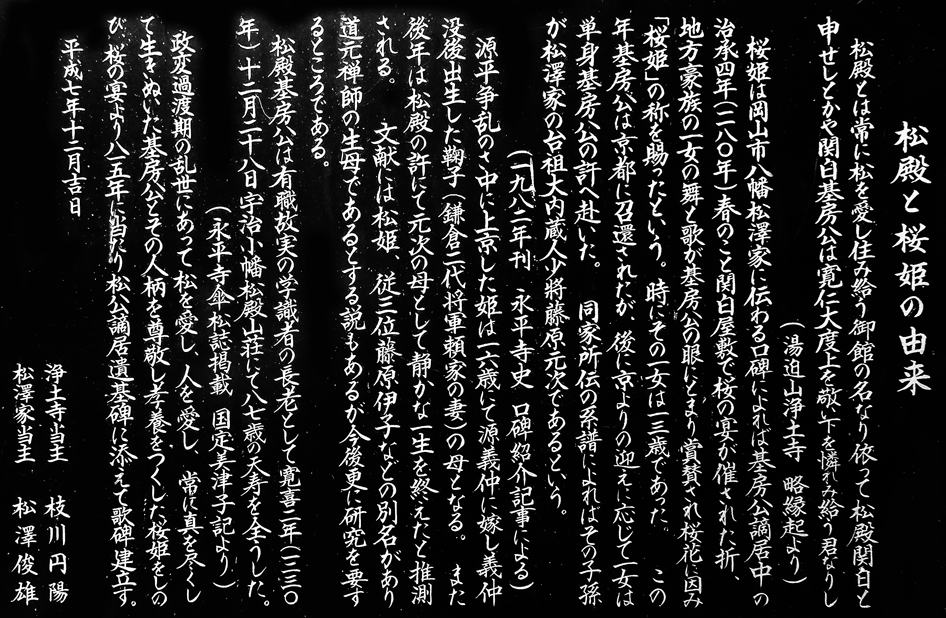 松殿と桜姫の由来
松殿とは常に松を愛し住み給う御館の名なり依って松殿関白と
申せしとかや関白基房公は寛仁大度上を敬い下を憐れみ給う君なりし
(湯迫山浄土寺 略縁起より)
桜姫は岡山市八幡松澤家に伝わる口碑によれば基房公謫居中の
治承四年(一一八〇年)春のこと関白屋敷で桜の宴が催された折、
地方豪族の一女の舞と歌が基房公の眼にとまり賞賛され桜花に因み
「桜姫」の称を賜ったという。 時にその一女は一三歳であった。 この
年基房公は京都に召還されたが、後に京よりの迎えに応じて一女は
単身基房公の許へ赴いた。 同家所伝の系譜によればその子孫
が松澤家の台祖大内蔵人少将藤原元次であるという。
(一九八二年刊 永平寺史 口碑紹介記事による)
源平争乱のさ中に上京した姫は一六歳にて源義仲に嫁し義仲
没後出生した鞠子(鎌倉二代将軍頼家の妻)の母となる。 また
後年は松殿の許にて元次の母として静かな一生を終えたと推測
される。 文献には松姫、従三位藤原伊子などの別名があり
道元禅師の生母であるとする説もあるが今後更に研究を要す
るところである。
松殿基房公は有職故実の学識者の長老として寛喜二年(一二三〇
年)十二月二十八日宇治小幡松殿山荘にて八七歳の天寿を全うした。
(永平寺傘松誌掲載 国定美津子記より)
政変過渡期の乱世にあって松を愛し、人を愛し、常に真を尽くし
て生きぬいた基房公とその人柄を尊敬し孝養をつくした桜姫をしの
び桜の宴より八一五年に当たり松公謫居遺基碑に添えて歌碑建立す。
平成七年十二月吉日
浄土寺当主 枝川円陽
松澤家当主 松澤俊雄